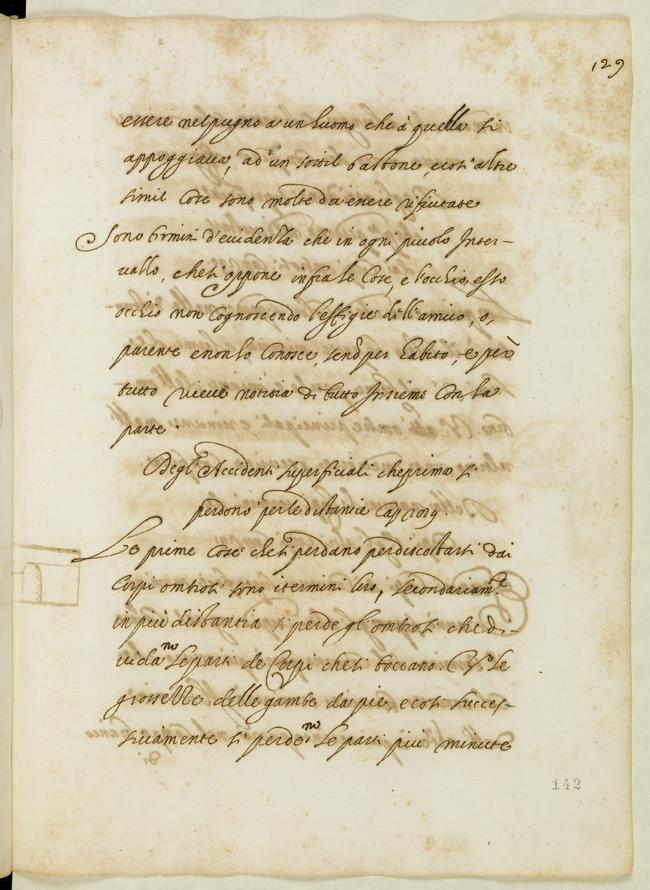 129
essere nel pugno a un huomo che à quella si
appoggiava, ad'un sottil bastone, e cosi altre
simil cose sono molte da essere rifiutate
Sono termini d'evidenza che in ogni picolo Inter-
vallo, che si oppone infra le Cose, e l'occhio, esso
occhio non cognoscendo l'effigie dell'amico, o,
parente e non lo conosce, se nō per habito, e per
tutto riceve notitia di tutto Insieme con la
parte.
Degl'Accidenti superficiali che prima si
perdono per le distantie Cap
Le prime Cose che si perdano per discostarsi dai
Corpi ombrosi sono i termini loro, secondariam.te
in più distantia si perde gl'ombrosi che di-
vidano le parti de Corpi che si toccano. le
grossezze delle gambe da pie, e cosi succes-
sivamente si perdeno le parti più minute
142